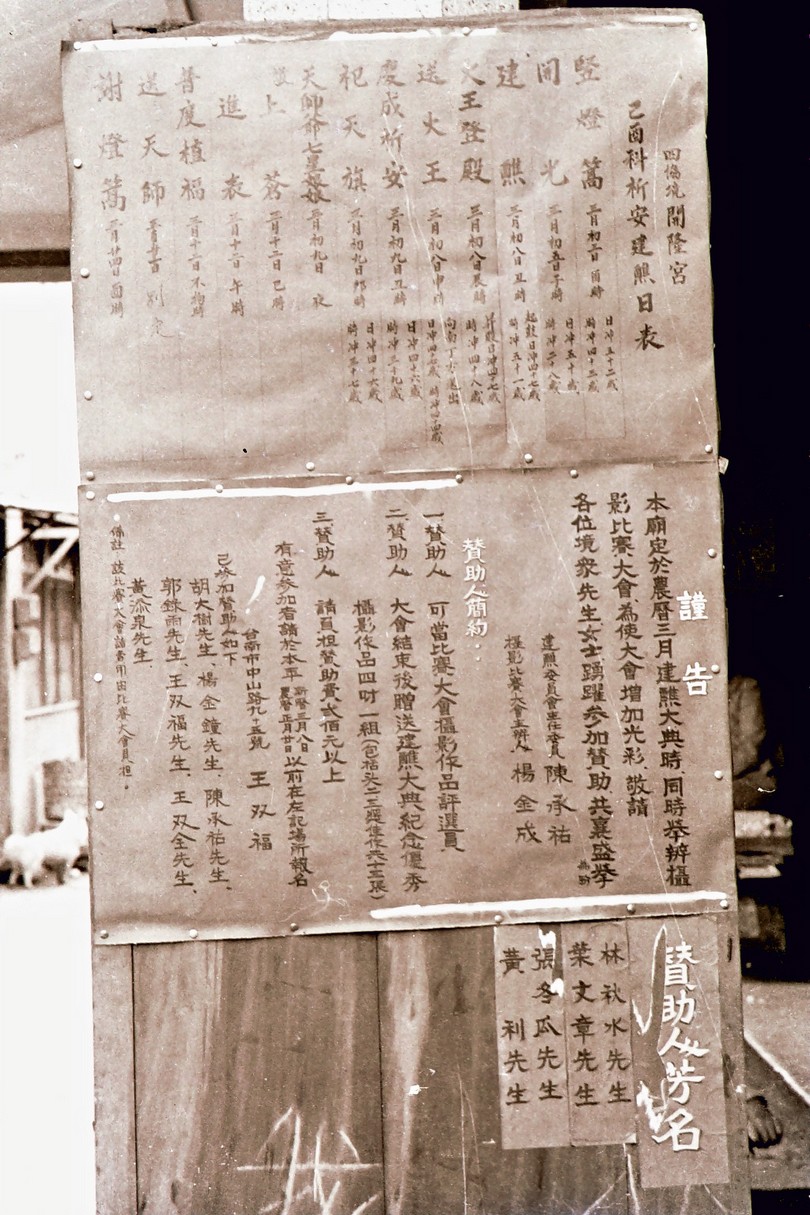 四協境開隆宮
己酉科祈安建醮日表
豎燈篙 三月初二日酉時 日沖五十二歲 時沖四十二歲
開光 三月初五日午時 日沖五十歲 時沖二十八歲
建醮 三月初八日丑時 起鼓日沖四十七歲 時沖五十一歲
火王登殿 三月初八日辰時 昇殿日沖四十七歲 時沖四十八歲
送火王 三月初八日申時 向南丁方送出 日沖四十七歲
慶成祈安 三月初九日丑時 日沖四十六歲 時沖三十九歲
祀天旗 三月初九日卯時 日沖四十六歲 時沖三十七歲
天師爺七星娘娘 三月初九日 夜
上蒼 三月十二日巳時
進表 三月十二日午時
普度植福 三月十二日不拘時
送天師 別定
謝燈篙 三月廿四日酉時
謹告
本廟定於農曆三月建醮大典時、同時舉辦攝
影比賽大會為使大會增加光彩、敬請
各位境眾先生女士踴躍參加贊助、共襄盛舉
建醮委員會主任委員 陳承祐
攝影比賽大會主辦人 楊金成
贊助人簡約：
一、贊助人 可當比賽大會攝影作品評選員
二、贊助人 大會結束後贈送建醮大典紀念優秀
攝影作品四吋一組(包括頭二三選佳作共十五張)
三、贊助人 請負担贊助費弍佰元以上
有意參加者請於本年 新曆三月八日 農曆正月廿日 以前在左記場所報名
台南市中山路九十五號 王双福
已參加贊助人如下
胡大樹先生、楊金鐘先生、陳承祐先生、
郭錄雨先生、王双福先生、王双全先生、
黃添泉先生、
備註 該比賽大會諸費用由比賽大會負担。
贊助人芳名
林秋水先生
葉文章先生
張冬瓜先生
黃利先生